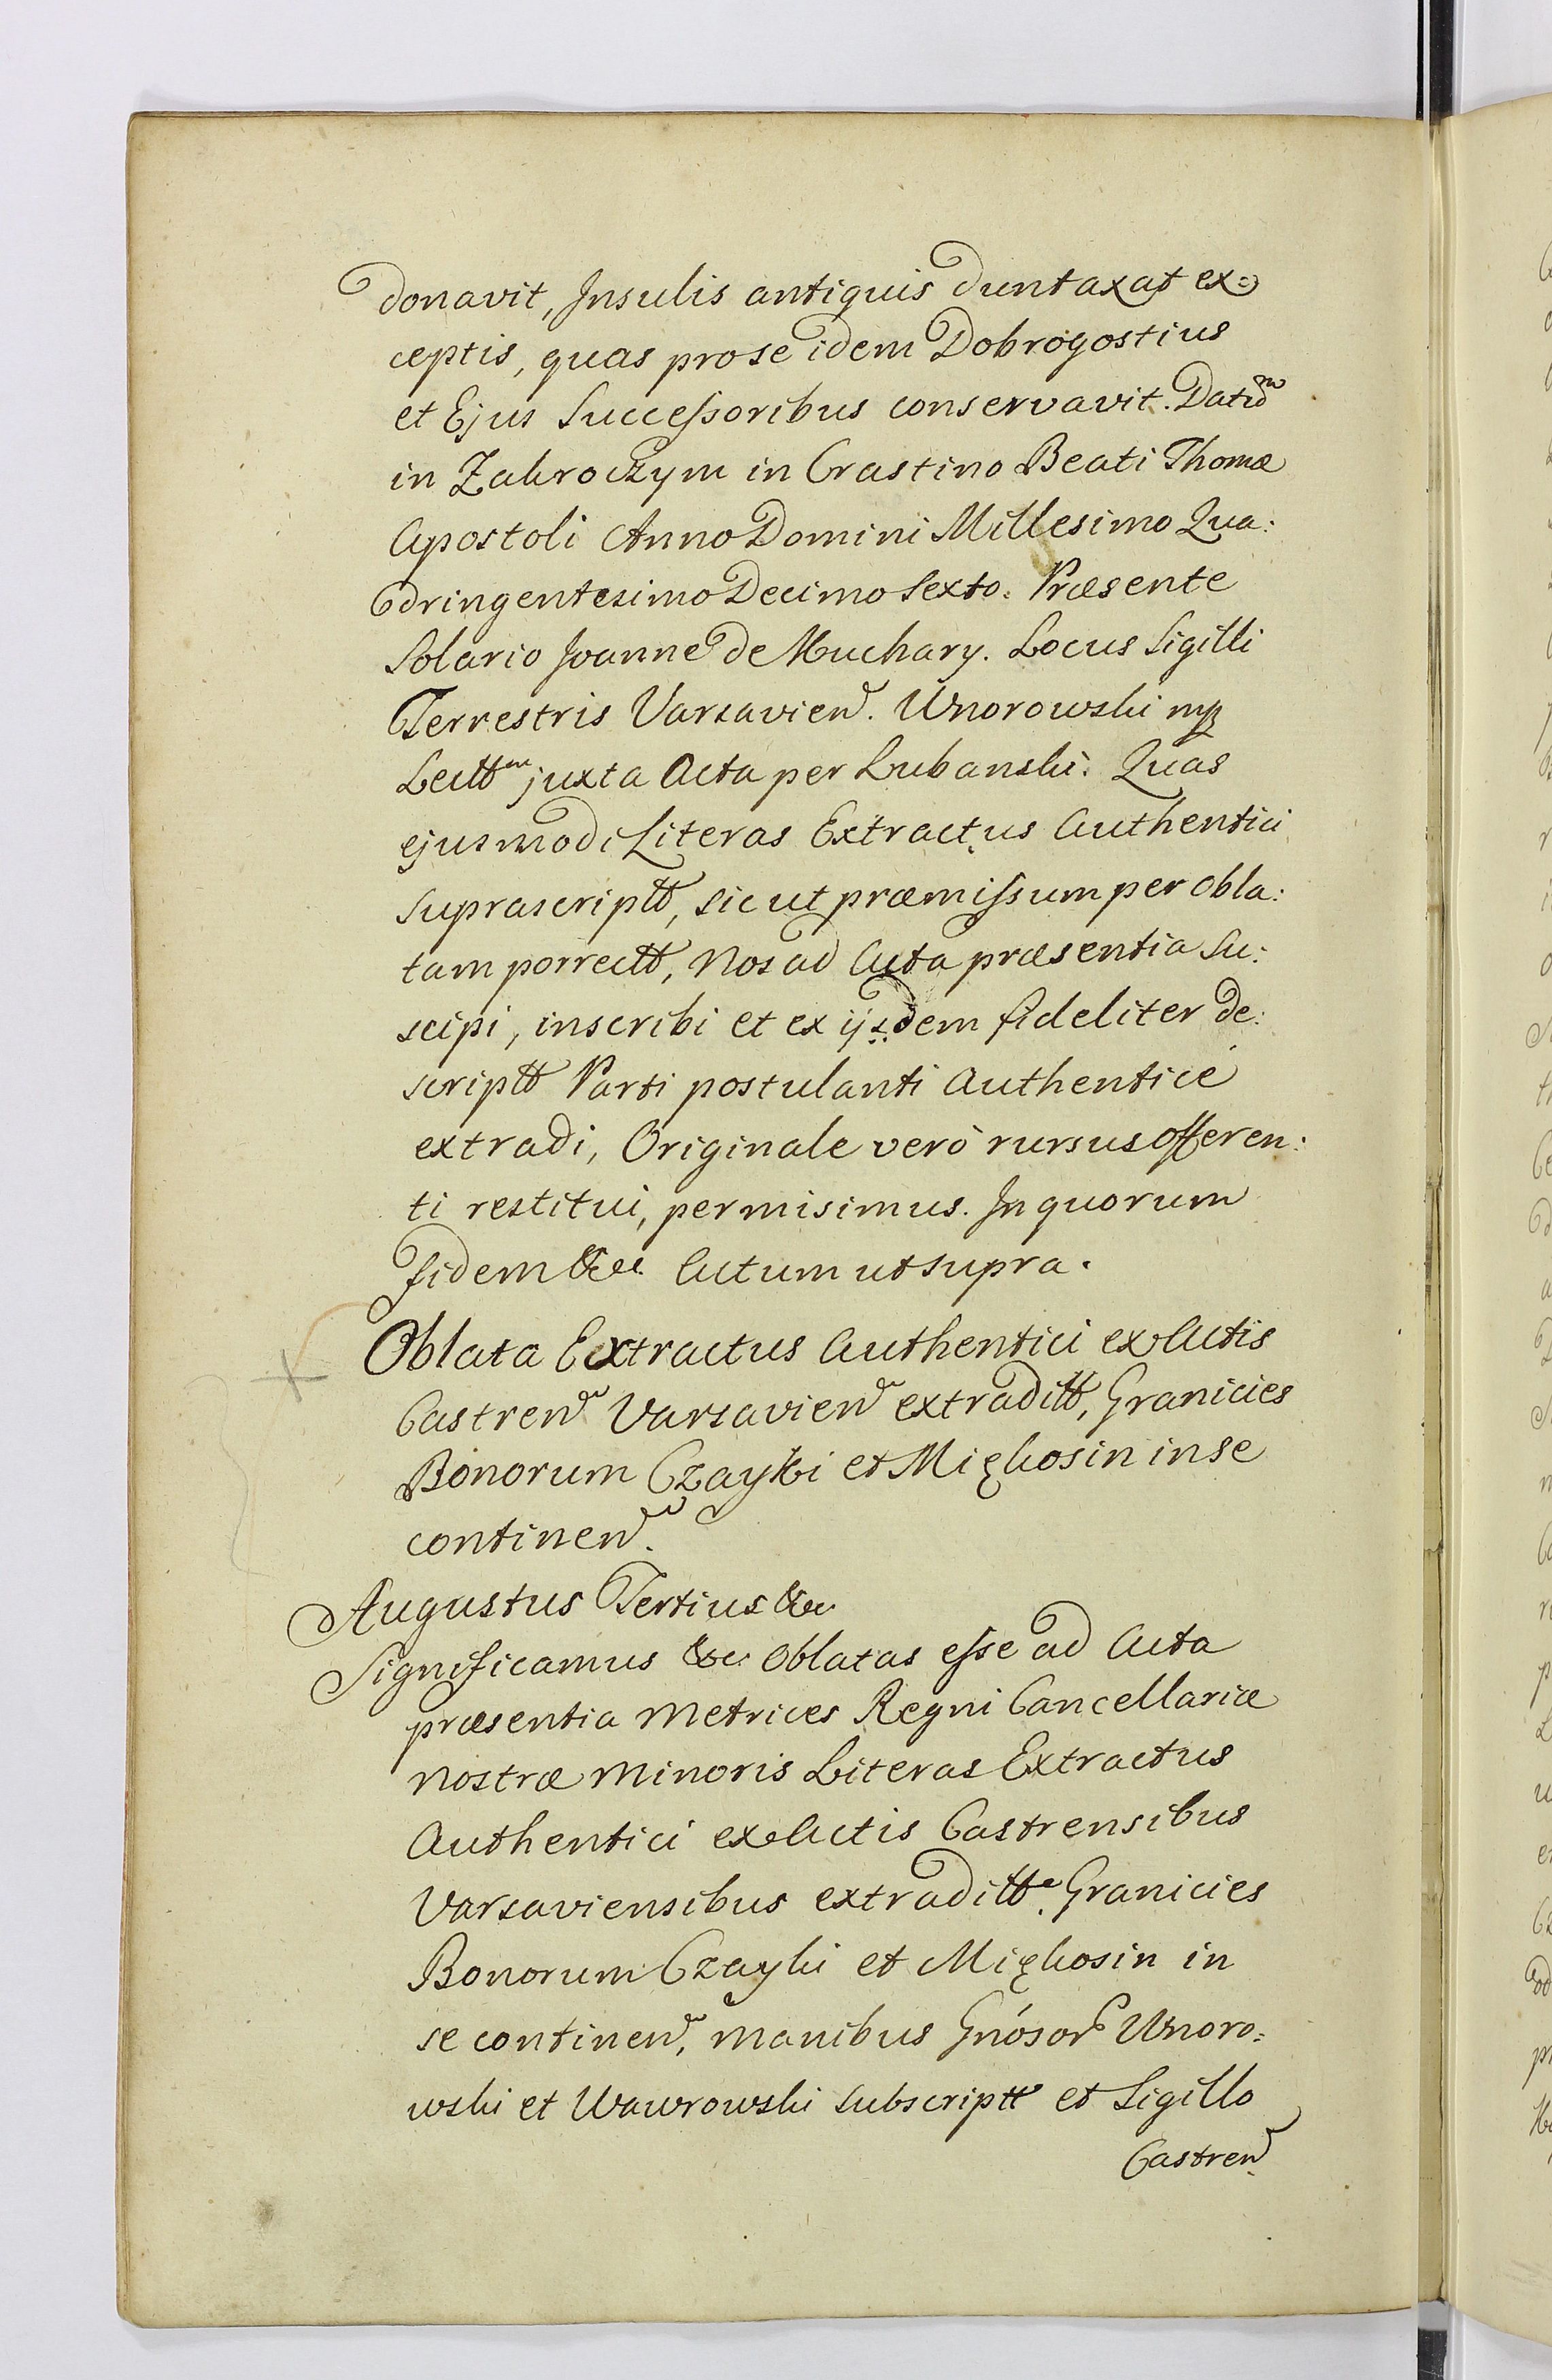 donavit, Insulis antiquis duntaxat ex=
ceptis, quas pro se idem Dobrogostius
et Ejus Successoribus conservavit. Datū
in Zakroczym in Crastino Beati Thomæ
Apostoli Anno Domini Millesimo Qua:
dringentesimo Decimo Sexto. Præsente
Solario Joanne de Muchary. Locus Sigilli
Terrestris Varsavien. Unorowski mp
Lectt juxta Acta per Lubanski. Quas
ejusmodi Literas Extractus Authentici
suprascriptt, sicut præmissum per obla:
tam porrectt, Nos ad Acta præsentia Su:
scipi, inscribi et ex ijsdem fideliter de:
scriptt Parti postulanti authenticè
extradi, Originale verò rursus offeren:
ti restitui, permisimus. In quorum
fidem &c. Actum ut supra.
Oblata Extractus Authentici ex Actis
Castren Varsavien extraditt, Granicies
Bonorum Czayki et Miękosin in se
continen.
Augustus Tertius &c
Significamus &c Oblatas esse ad Acta
præsentia Metrices Regni Cancellariæ
Nostræ Minoris Literas Extractus
Authentici ex Actis Castrensibus
Varsaviensibus extraditt. Granicies
Bonorum Czayki et Miękosin in
se continen, manibus Gnósor Unoro=
wski et Wawrowski subscriptt et Sigillo
Castren